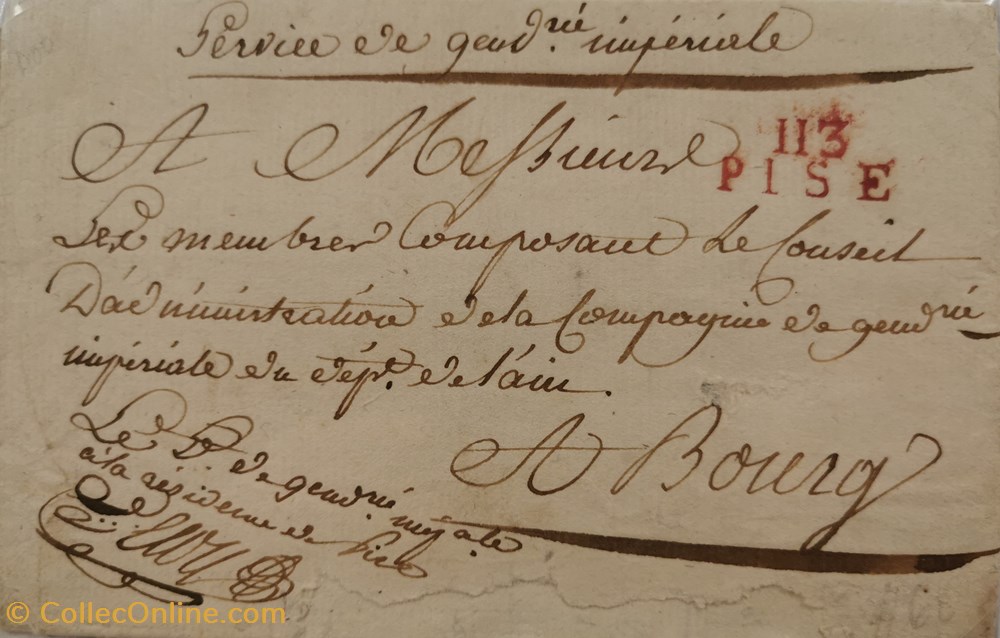 Service de gend.rie impériale
A Messieurs
113
PISE
Les membres Composant Le Conseil
D'administration de la Compagnie de gend.rie
impériale du dép.t de l'ain.
A Bourg
Le de gend.rie imp.ale
à la résidence de Pise
© CollecOnline.com